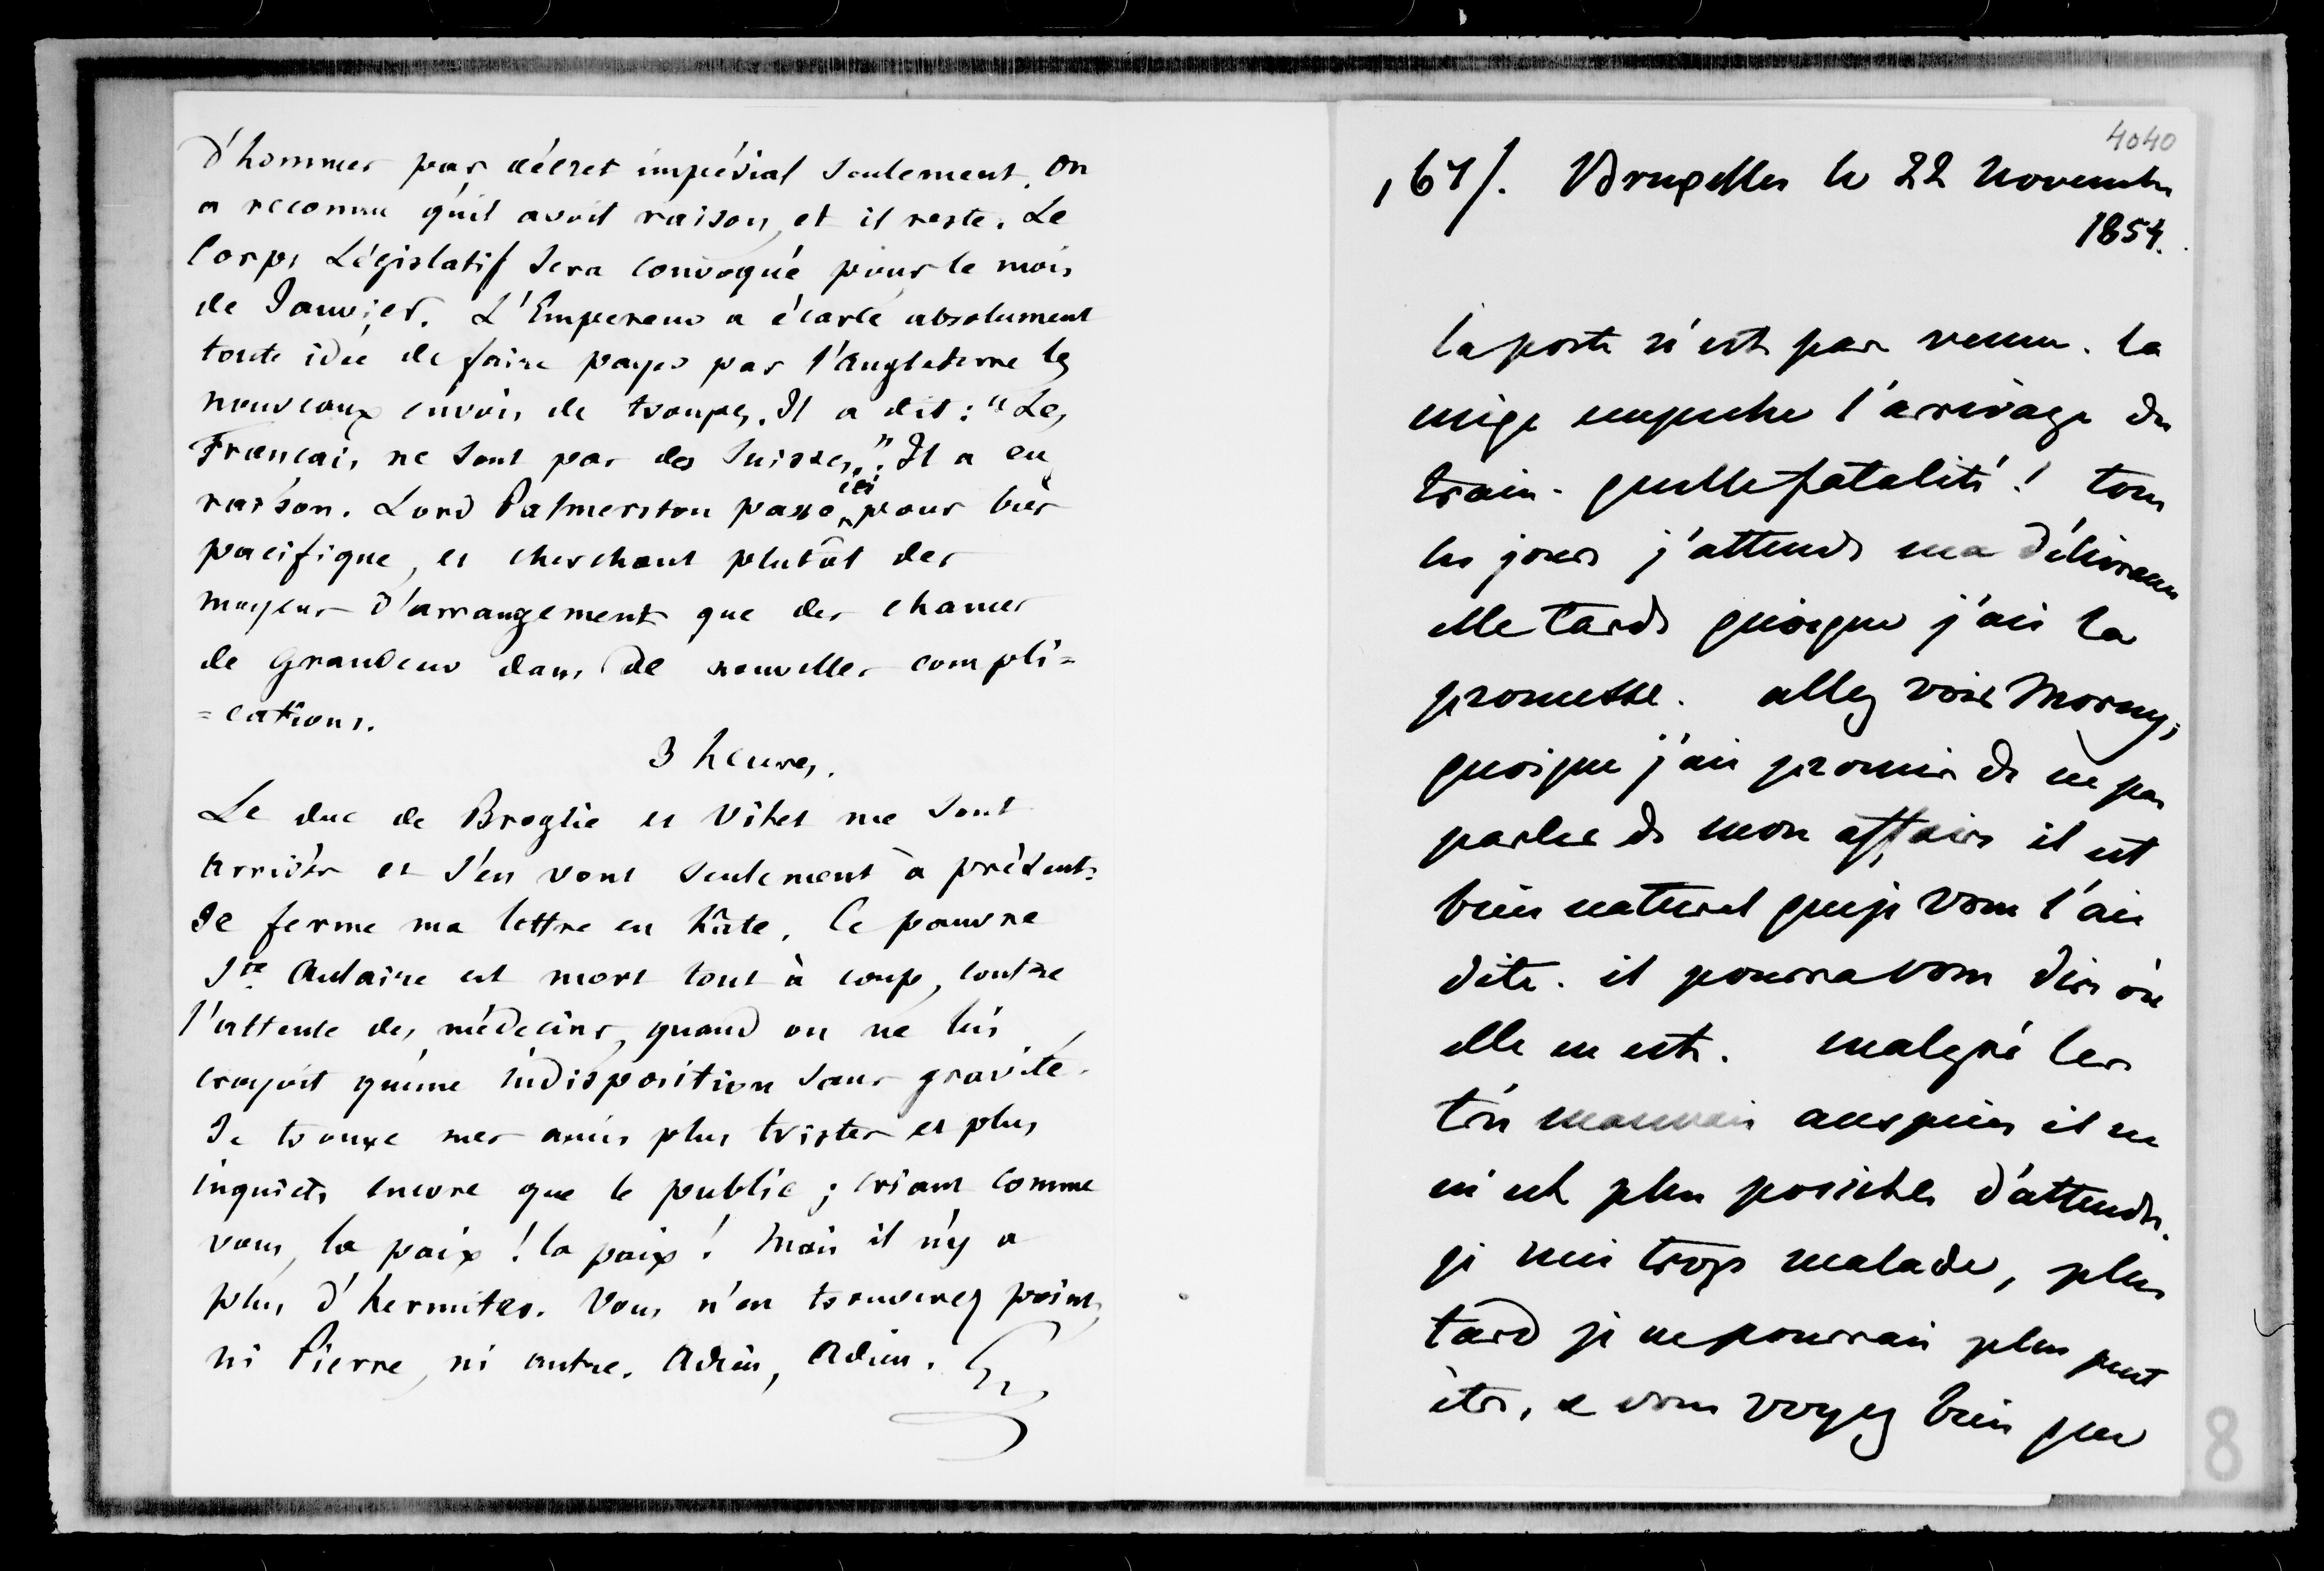 d'hommes par décret impérial seulement. On
a reconnu qu'il avoit raison, et il reste. Le
Corps Législatif sera convoqué pour le mois
de Janvier. L'Empereur a écarté absolument
toute idée de faire payer par l'Angleterre les
nouveaux envois de troupes. Il a dit : "Les
Français ne sont pas des Suisses." Il a eu
raison. Lord Palmerston passe ici pour très
pacifique, et cherchant plutôt des
moyens d'arrangement que des chances
de grandeur dans de nouvelles compli=
=cations.
3 heures.
Le duc de Broglie et Vitet me sont
arrivés et s'en vont seulement à présent.
Je ferme ma lettre en hâte. Ce pauvre
Ste Aulaire est mort tout à coup, contre
l'attente des médecins, quand on ne lui
croyoit qu'une indisposition sans gravité.
Je trouve mes amis plus tristes et plus
inquiets encore que le public ; criant comme
vous, la paix ! la paix ! Mais il n'y a
plus d'hermites. Vous n'en trouverez point,
ni Pierre, ni autre. Adieu, Adieu.
4040
167/. Bruxelles le 22 novembre
1854.
la poste n'est pas venue. la
neige empeche l'arrivage du
train. quelle fatalité ! tous
les jours j'attends ma délivrance
elle tarde quoique j'aie la
promesse. allez voir Morny,
quoique j'aie promis de ne pas
parler de mon affaire il est
bien naturel que je vous l'aie
dite. il pourra vous dire où
elle en est. malgré les
très mauvais auspices il ne
m'est plus possible d'attendre.
je suis trop malade, plus
tard je ne pourrai plus peut
être, & vous voyez bien que
8